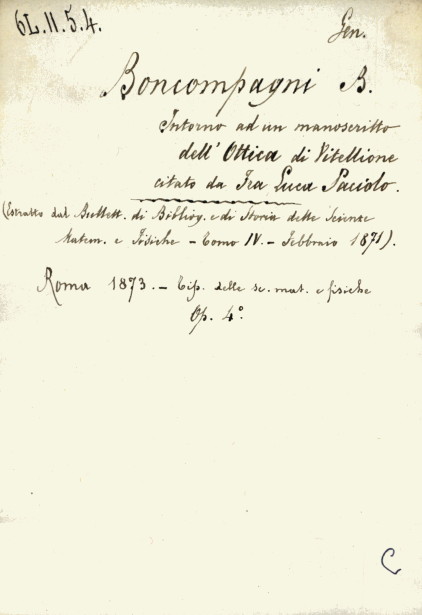 6L.11.5.4.
Gen.
Boncompagni B.
Intorno ad un manoscritto
dell' Ottica di Vitellione
citato da Fra Luca Paciolo.
(Estratto dal Bullett. di Bibliog. e di Storia delle Scienze
Matem. e Fisiche - Tomo IV. - Febbraio 1871).
Roma 1873. - Tip. delle sc. mat. e fisiche
Op. 4°.
C